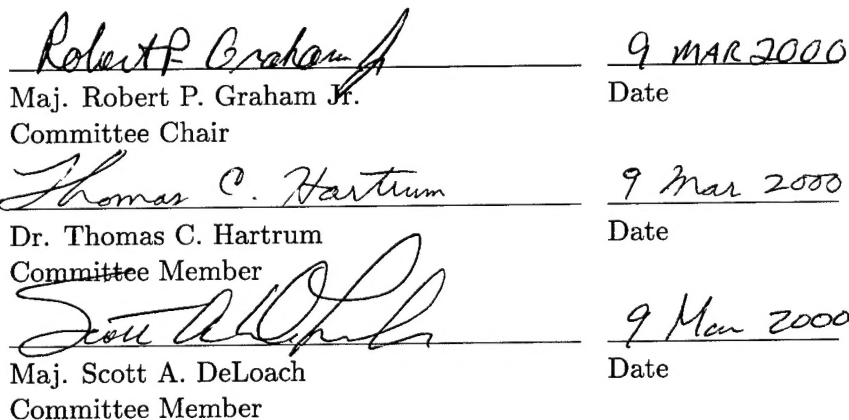 Robert P. Graham Jr 9 MAR 2000
Maj. Robert P. Graham Jr. Date
Committee Chair
Thomas C. Hartrum 9 Mar 2000
Dr. Thomas C. Hartrum Date
Committee Member
Scott A. DeLoach 9 Mar 2000
Maj. Scott A. DeLoach Date
Committee Member